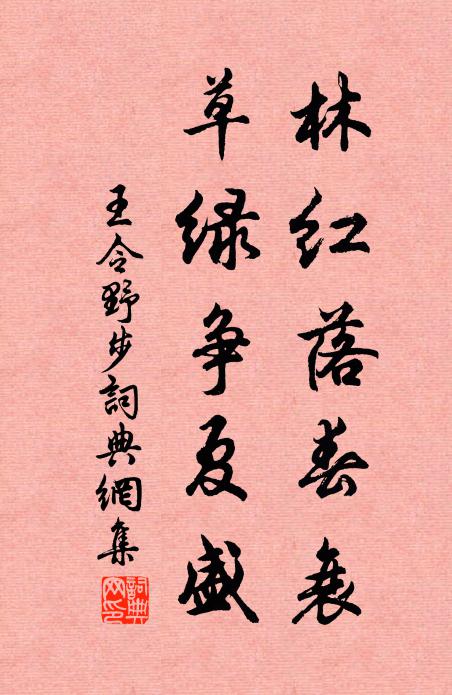 林红落春衰
草绿争夏盛
王令野步詞典網集
詞典
网印